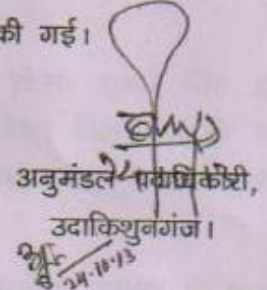 की गई।
अनुमंडल पदाधिकारी,
उदाकिशुनगंज।
24-10-13